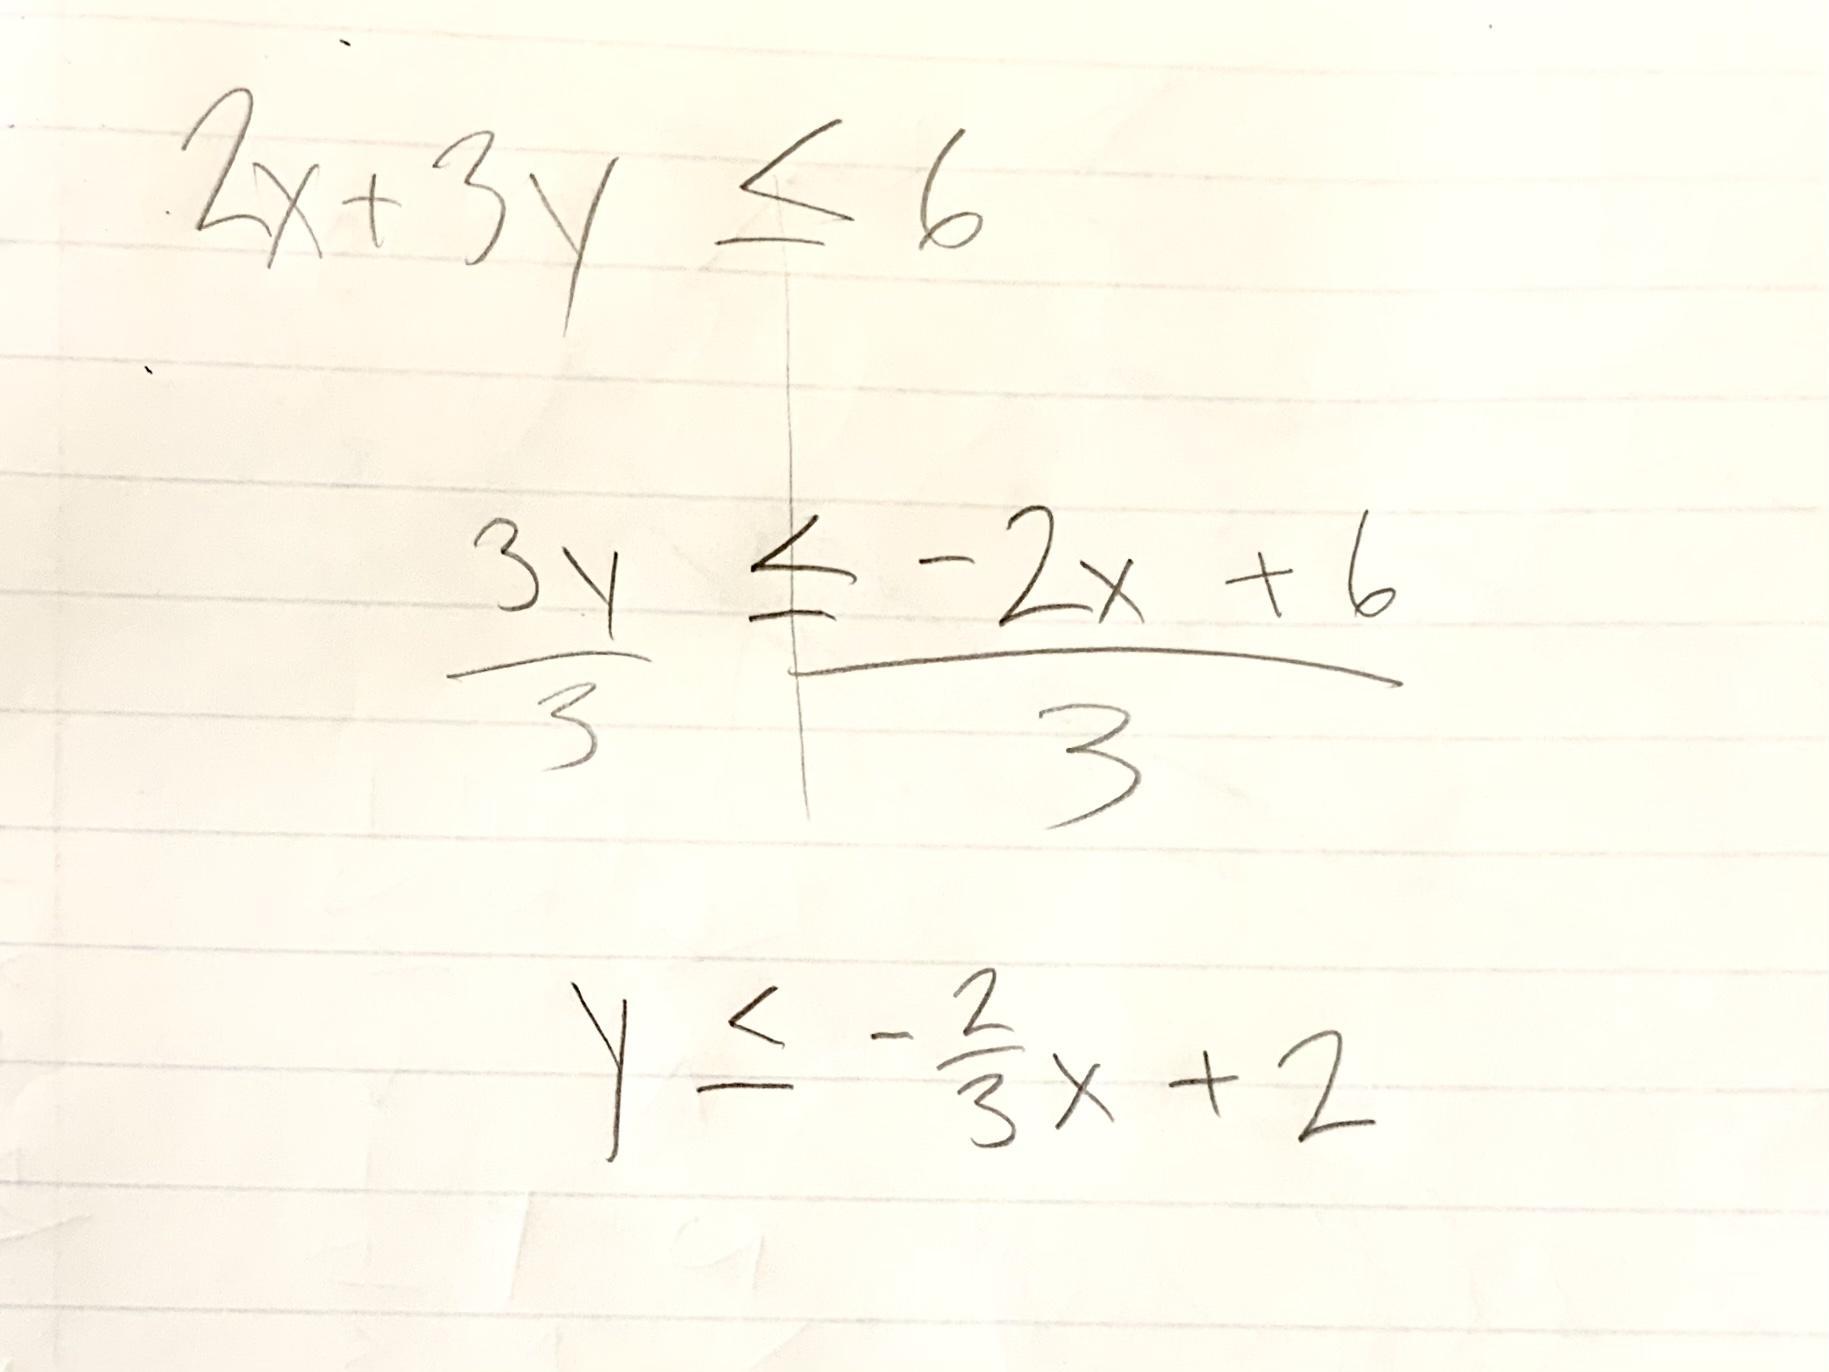 2x+3y ≤ 6
3y ≤ -2x + 6
3 3
y ≤ -2/3x + 2